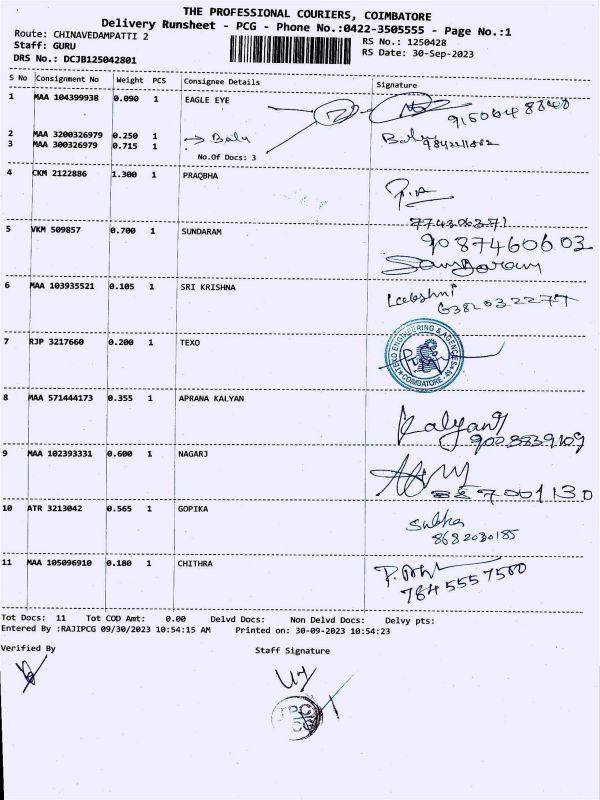 THE PROFESSIONAL COURIERS, COIMBATORE
Delivery Runsheet - PCG - Phone No.:0422-3505555 - Page No.:1
Route: CHINAVEDAMPATTI 2 RS No.: 1250428
Staff: GURU RS Date: 30-Sep-2023
DRS No.: DCJB125042801
S No Consignment No Weight PCS Consignee Details Signature
1 MAA 104399938 0.090 1 EAGLE EYE
2 MAA 3200326979 0.250 1 → Balu Balu
3 MAA 300326979 0.715 1
No.Of Docs: 3
4 CKM 2122886 1.300 1 PRAQBHA
5 VKM 509857 0.700 1 SUNDARAM 9087460603
Sundaram
6 MAA 103935521 0.105 1 SRI KRISHNA
7 RJP 3217660 0.200 1 TEXO ENGINEERING & AGENCIES COIMBATORE
8 MAA 571444173 0.355 1 APRANA KALYAN Kalyan
9 MAA 102393331 0.600 1 NAGARJ
10 ATR 3213042 0.565 1 GOPIKA
8682030185
11 MAA 105096910 0.180 1 CHITHRA
7845557500
Tot Docs: 11 Tot COD Amt: 0.00 Delvd Docs: Non Delvd Docs: Delvy pts:
Entered By :RAJIPCG 09/30/2023 10:54:15 AM Printed on: 30-09-2023 10:54:23
Verified By Staff Signature